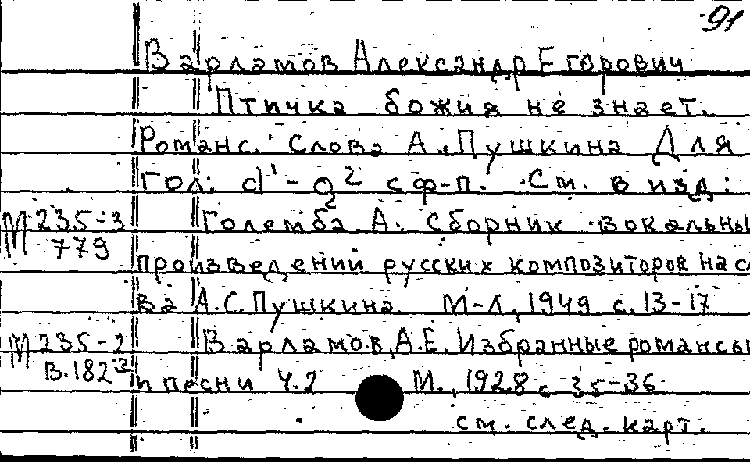 91
Варламов Александр Егорович
Птичка божия не знает.
Романс. Слова А. Пушкина Для
гол. d¹-g² с ф-п. См. в изд:
М 235-3 Големба А. Сборник вокальны
779
произведений русских композиторов на сл
ва А.С. Пушкина. М-Л, 1949 с. 13-17
М 235-2 Варламов, А.Е. Избранные романсы
В.182 и песни Ч.2 М., 1928 с 35-36
см. след. карт.